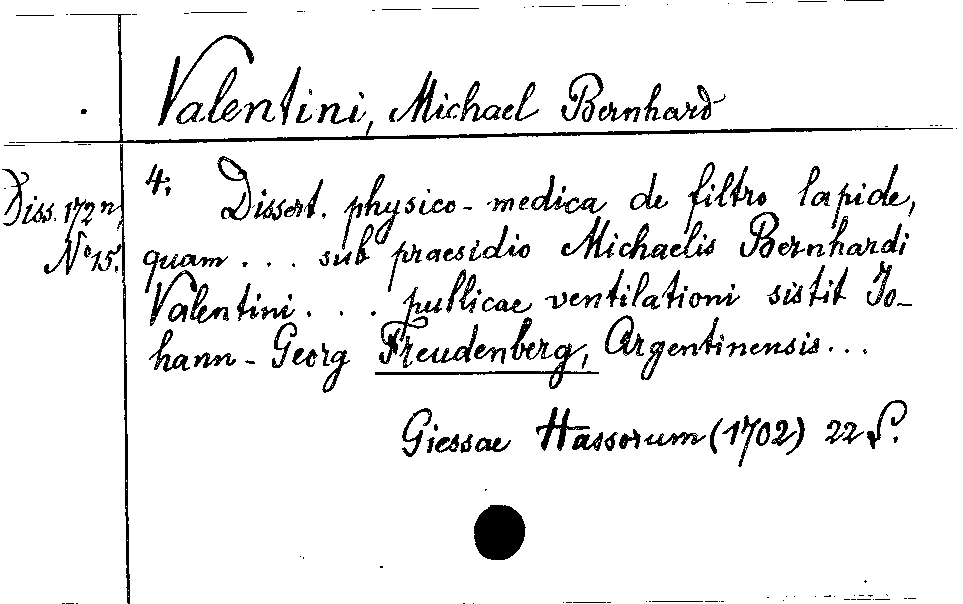 Valentini, Michael Bernhard
Diss. 172 n,
No 15.
4; Dissert. physico-medica de filtro lapide,
quam . . . sub praesidio Michaelis Bernhardi
Valentini . . . publicae ventilationi sistit Jo-
hann-Georg Freudenberg, Argentinensis...
Giessae Hassorum (1702) 22 S.